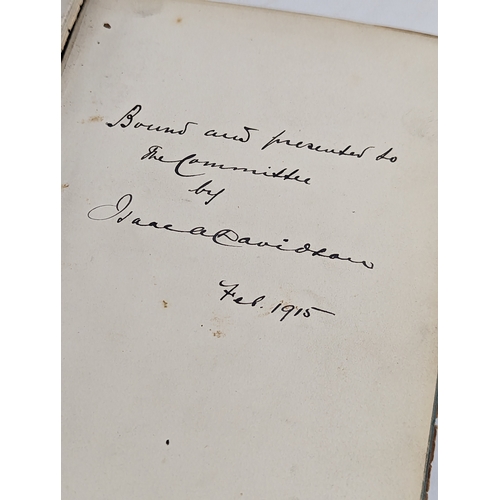 Bound and presented to
The Committee
by
Isaac A Davidson
Feb. 1915